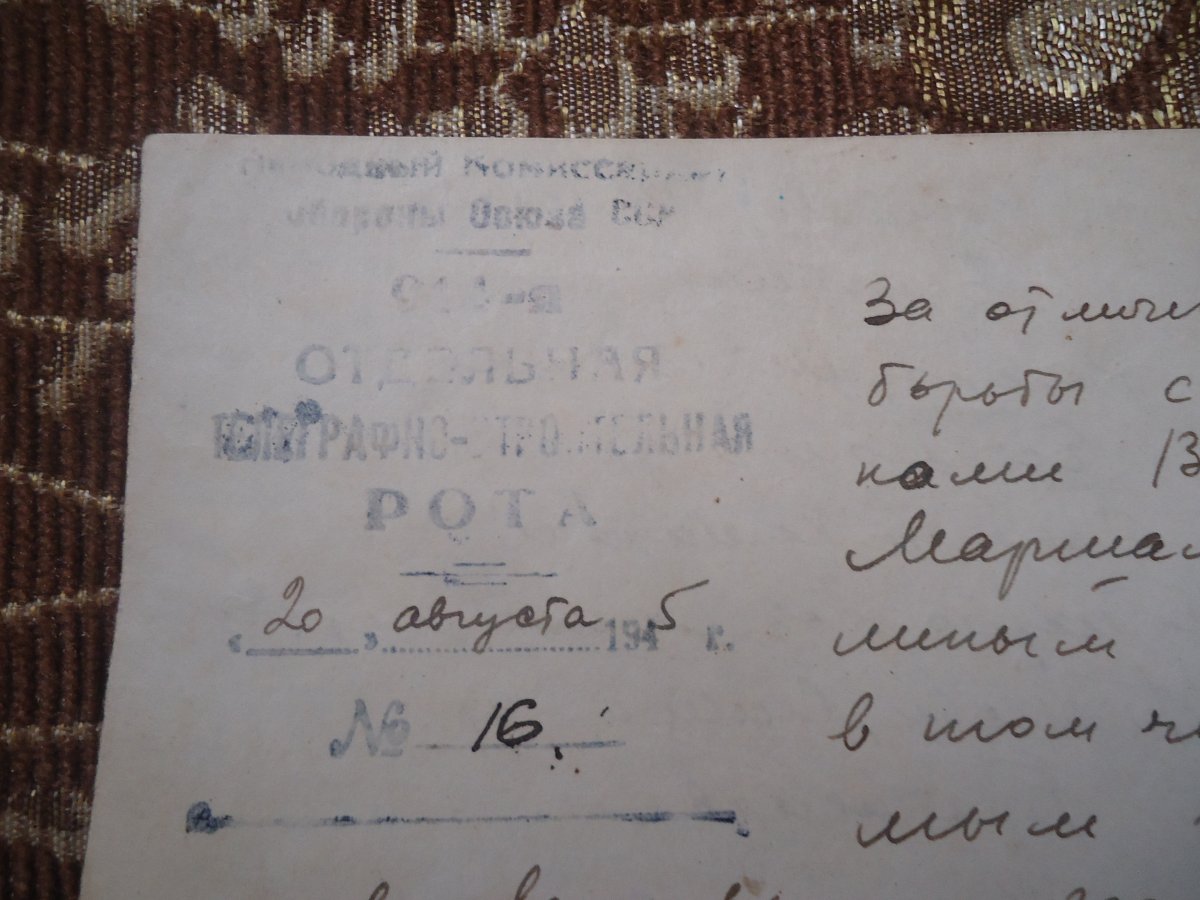 Народный Комиссариат
Обороны Союза ССР
ОТДЕЛЬНАЯ
ТЕЛЕГРАФНО-СТРОИТЕЛЬНАЯ
РОТА
« 20 » августа 1945 г.
№ 16.
За отлич
борьбы с
ками В
Маршал
линым
в том чи
мым